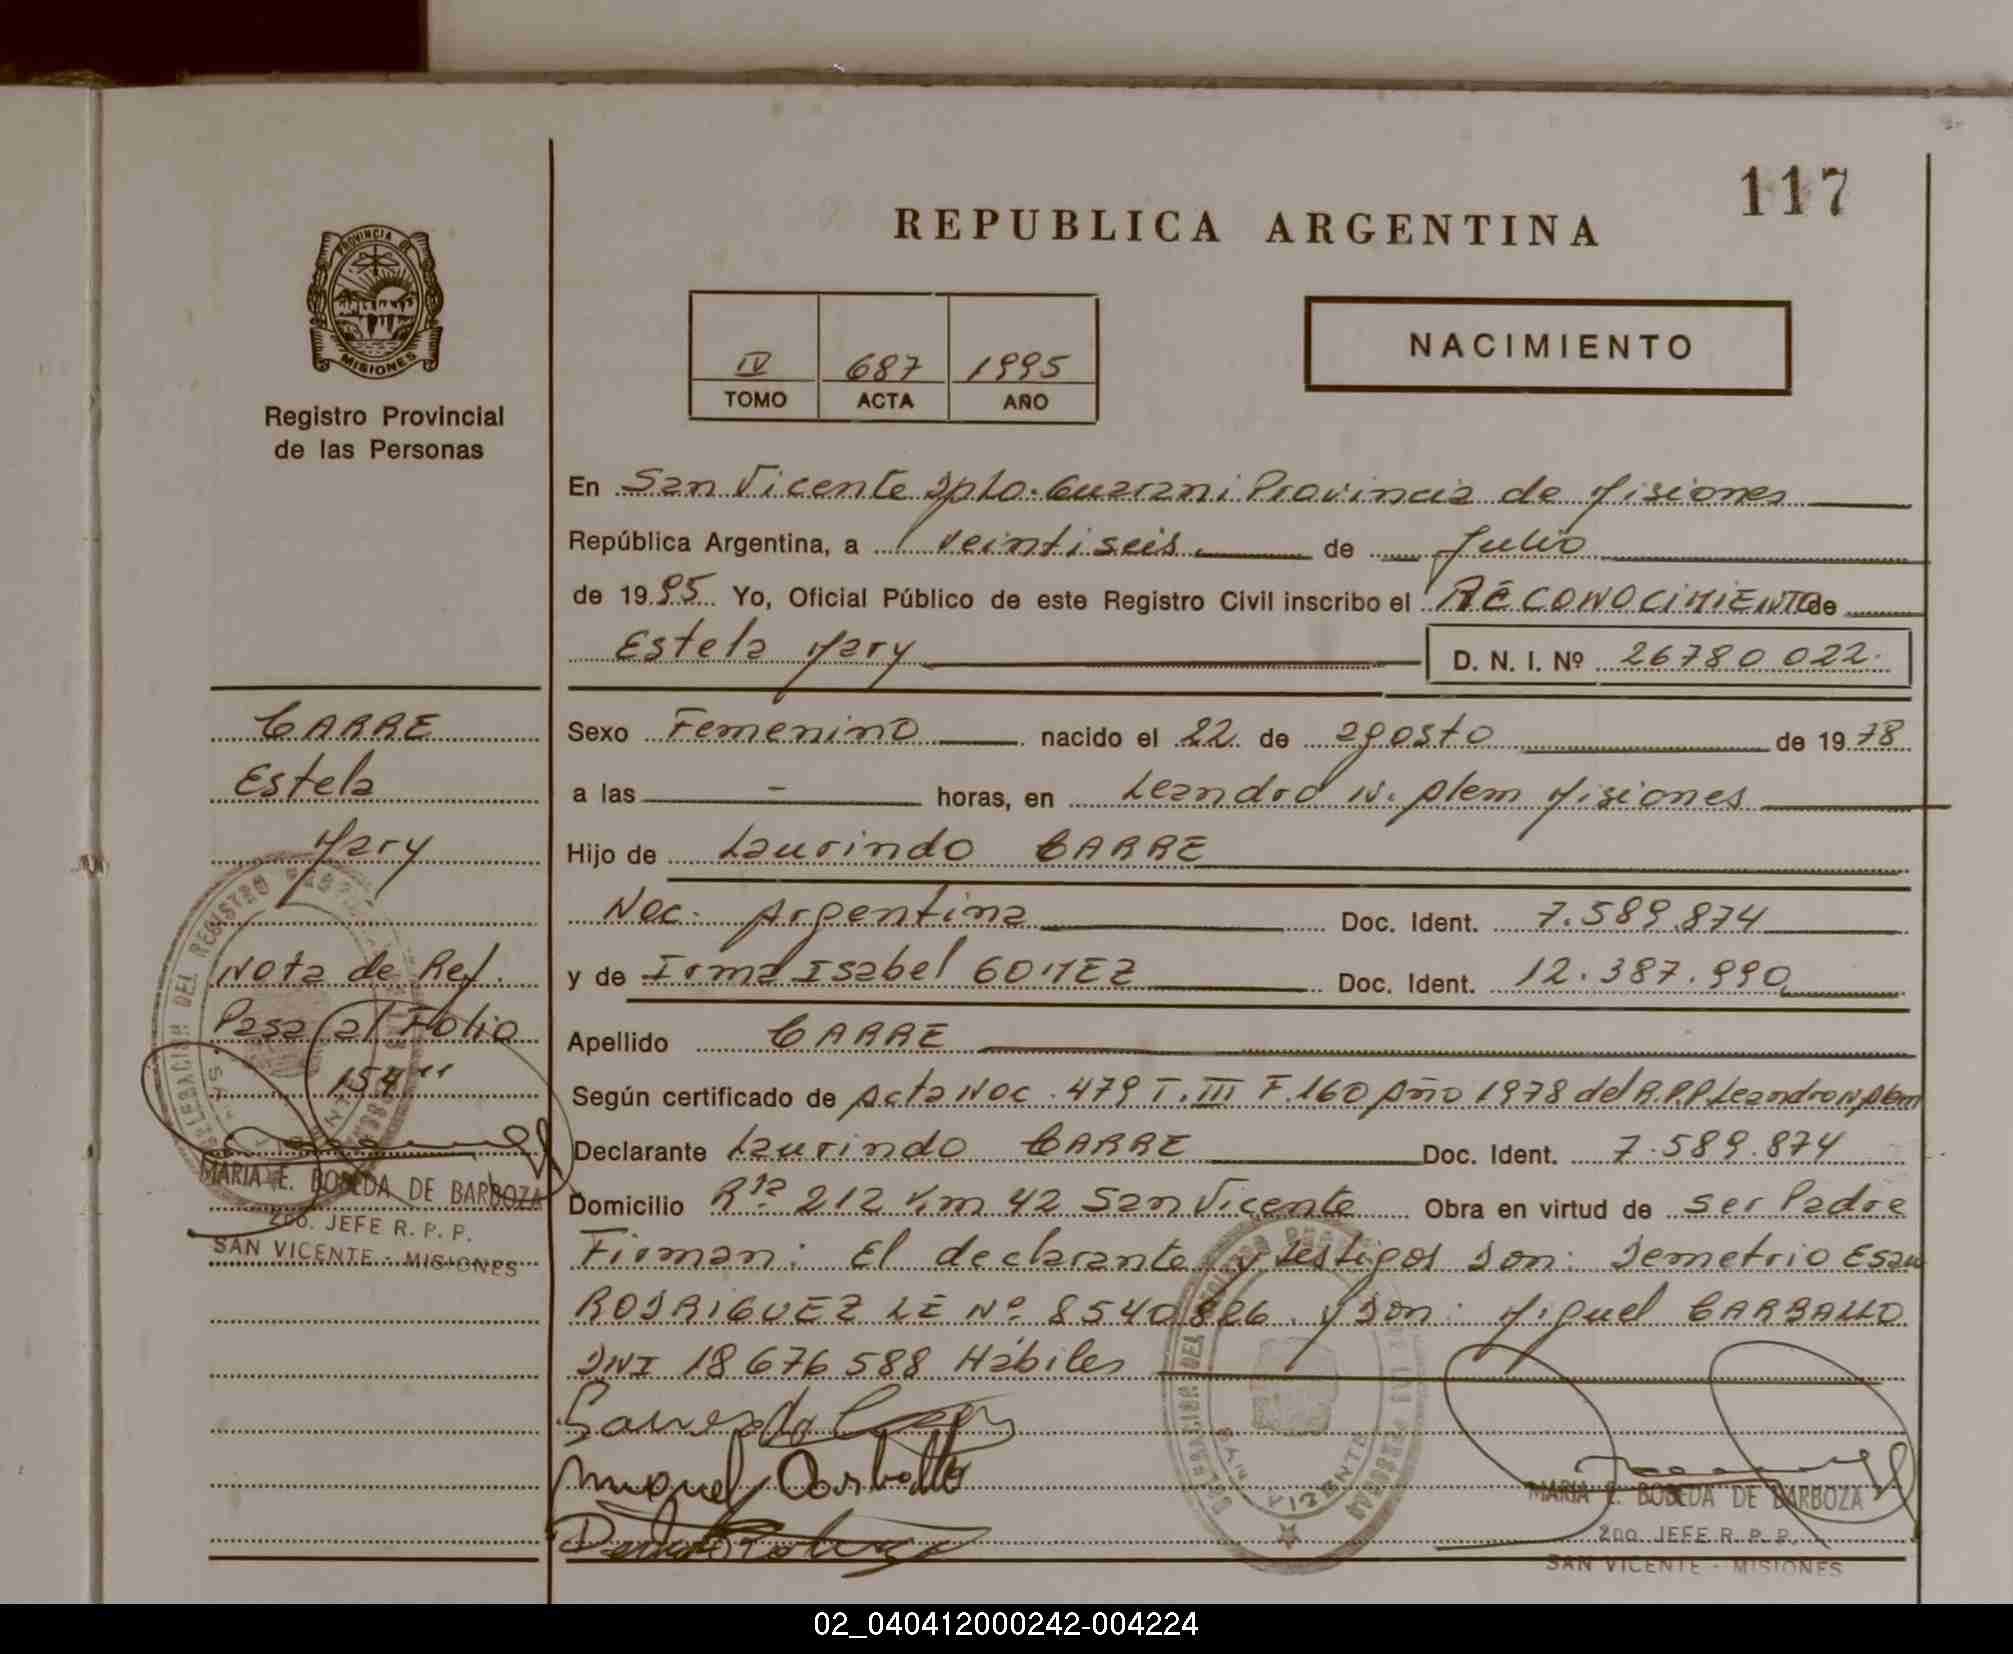 117
REPUBLICA ARGENTINA
PROVINCIA DE
MISIONES
Registro Provincial
de las Personas
IV 687 1995
TOMO ACTA AÑO
NACIMIENTO
En San Vicente Dpto. Guarani Provincia de Misiones
República Argentina, a veintiseis de Julio
de 1995 Yo, Oficial Público de este Registro Civil inscribo el RECONOCIMIENTO de
Estela Mary D. N. I. Nº 26780 022.
Sexo Femenino nacido el 22 de agosto de 1978
a las - horas, en Leandro N. Alem Misiones
Hijo de Laurindo CARRE
Nac. Argentina Doc. Ident. 7.589.874
y de Irma Isabel GOMEZ Doc. Ident. 12.387.990
Apellido CARRE
Según certificado de Acta Nac. 479 T. III F. 160 Año 1978 del R.P.P. Leandro N Alem
Declarante Laurindo CARRE Doc. Ident. 7.589.874
Domicilio Rta 212 Km 42 San Vicente Obra en virtud de ser Padre
Firman: El declarante y testigos Don: Demetrio Esau
RODRIGUEZ LE Nº 8540826 y Don: Miguel CARBALLO
DNI 18 676 588 Hábiles
Miguel Carballo
DELEGACION DEL REGISTRO DE LAS PERSONAS
SAN VICENTE
MARIA E. BOBEDA DE BARBOZA
2do. JEFE R. P. P.
SAN VICENTE - MISIONES
CARRE
Estela
Mary
Nota de Ref.
Pasa al Folio
154"
DELEGACION DEL REGISTRO
MARIA E. BOBEDA DE BARBOZA
2do. JEFE R. P. P.
SAN VICENTE - MISIONES
02_040412000242-004224